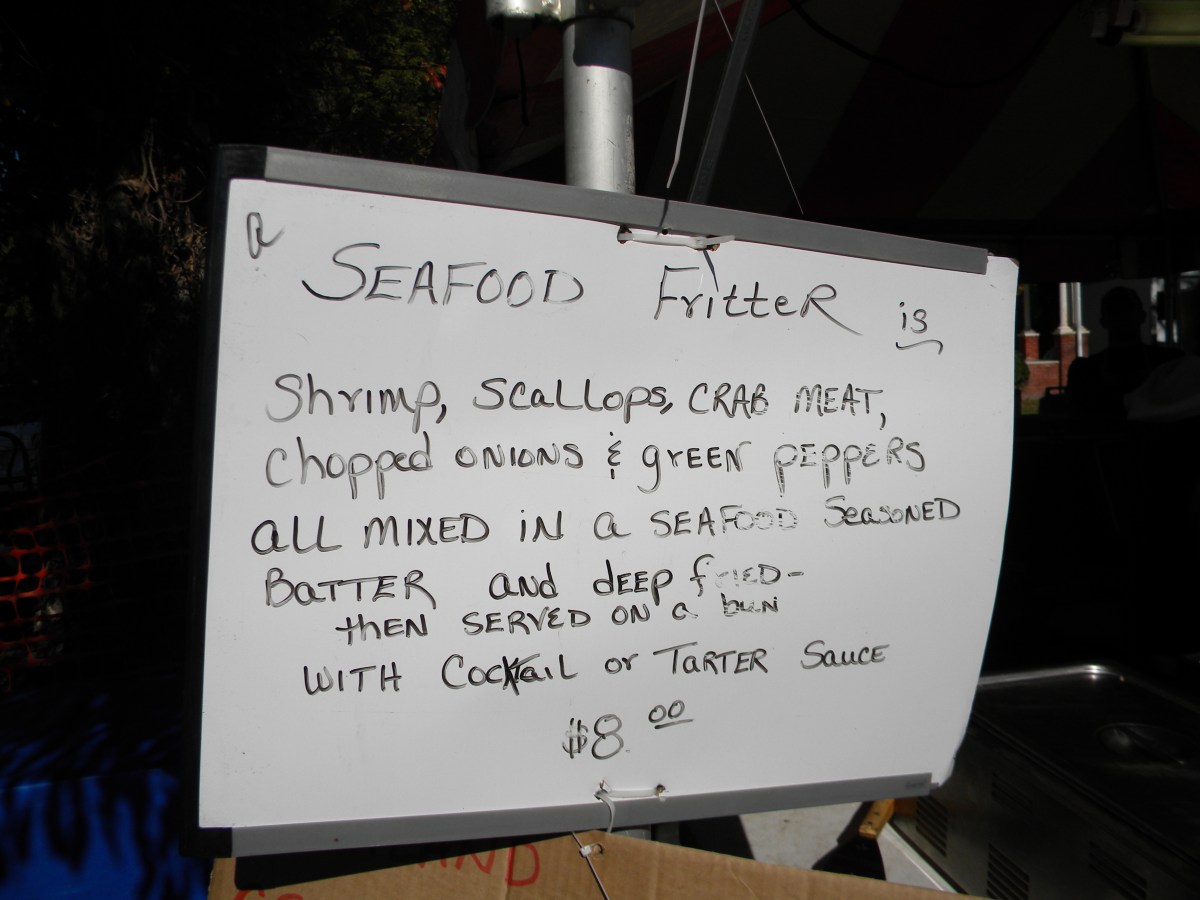 a
SEAFOOD FritteR is
Shrimp, Scallops, CRAB MEAT,
Chopped ONIONS & green PEPPERS
all MIXED IN a SEAFOOD SeasoNED
BaTTER and dEEP fRIED-
thEN SERVED ON a bun
WITH Cocktail or TARTER Sauce
$8.00